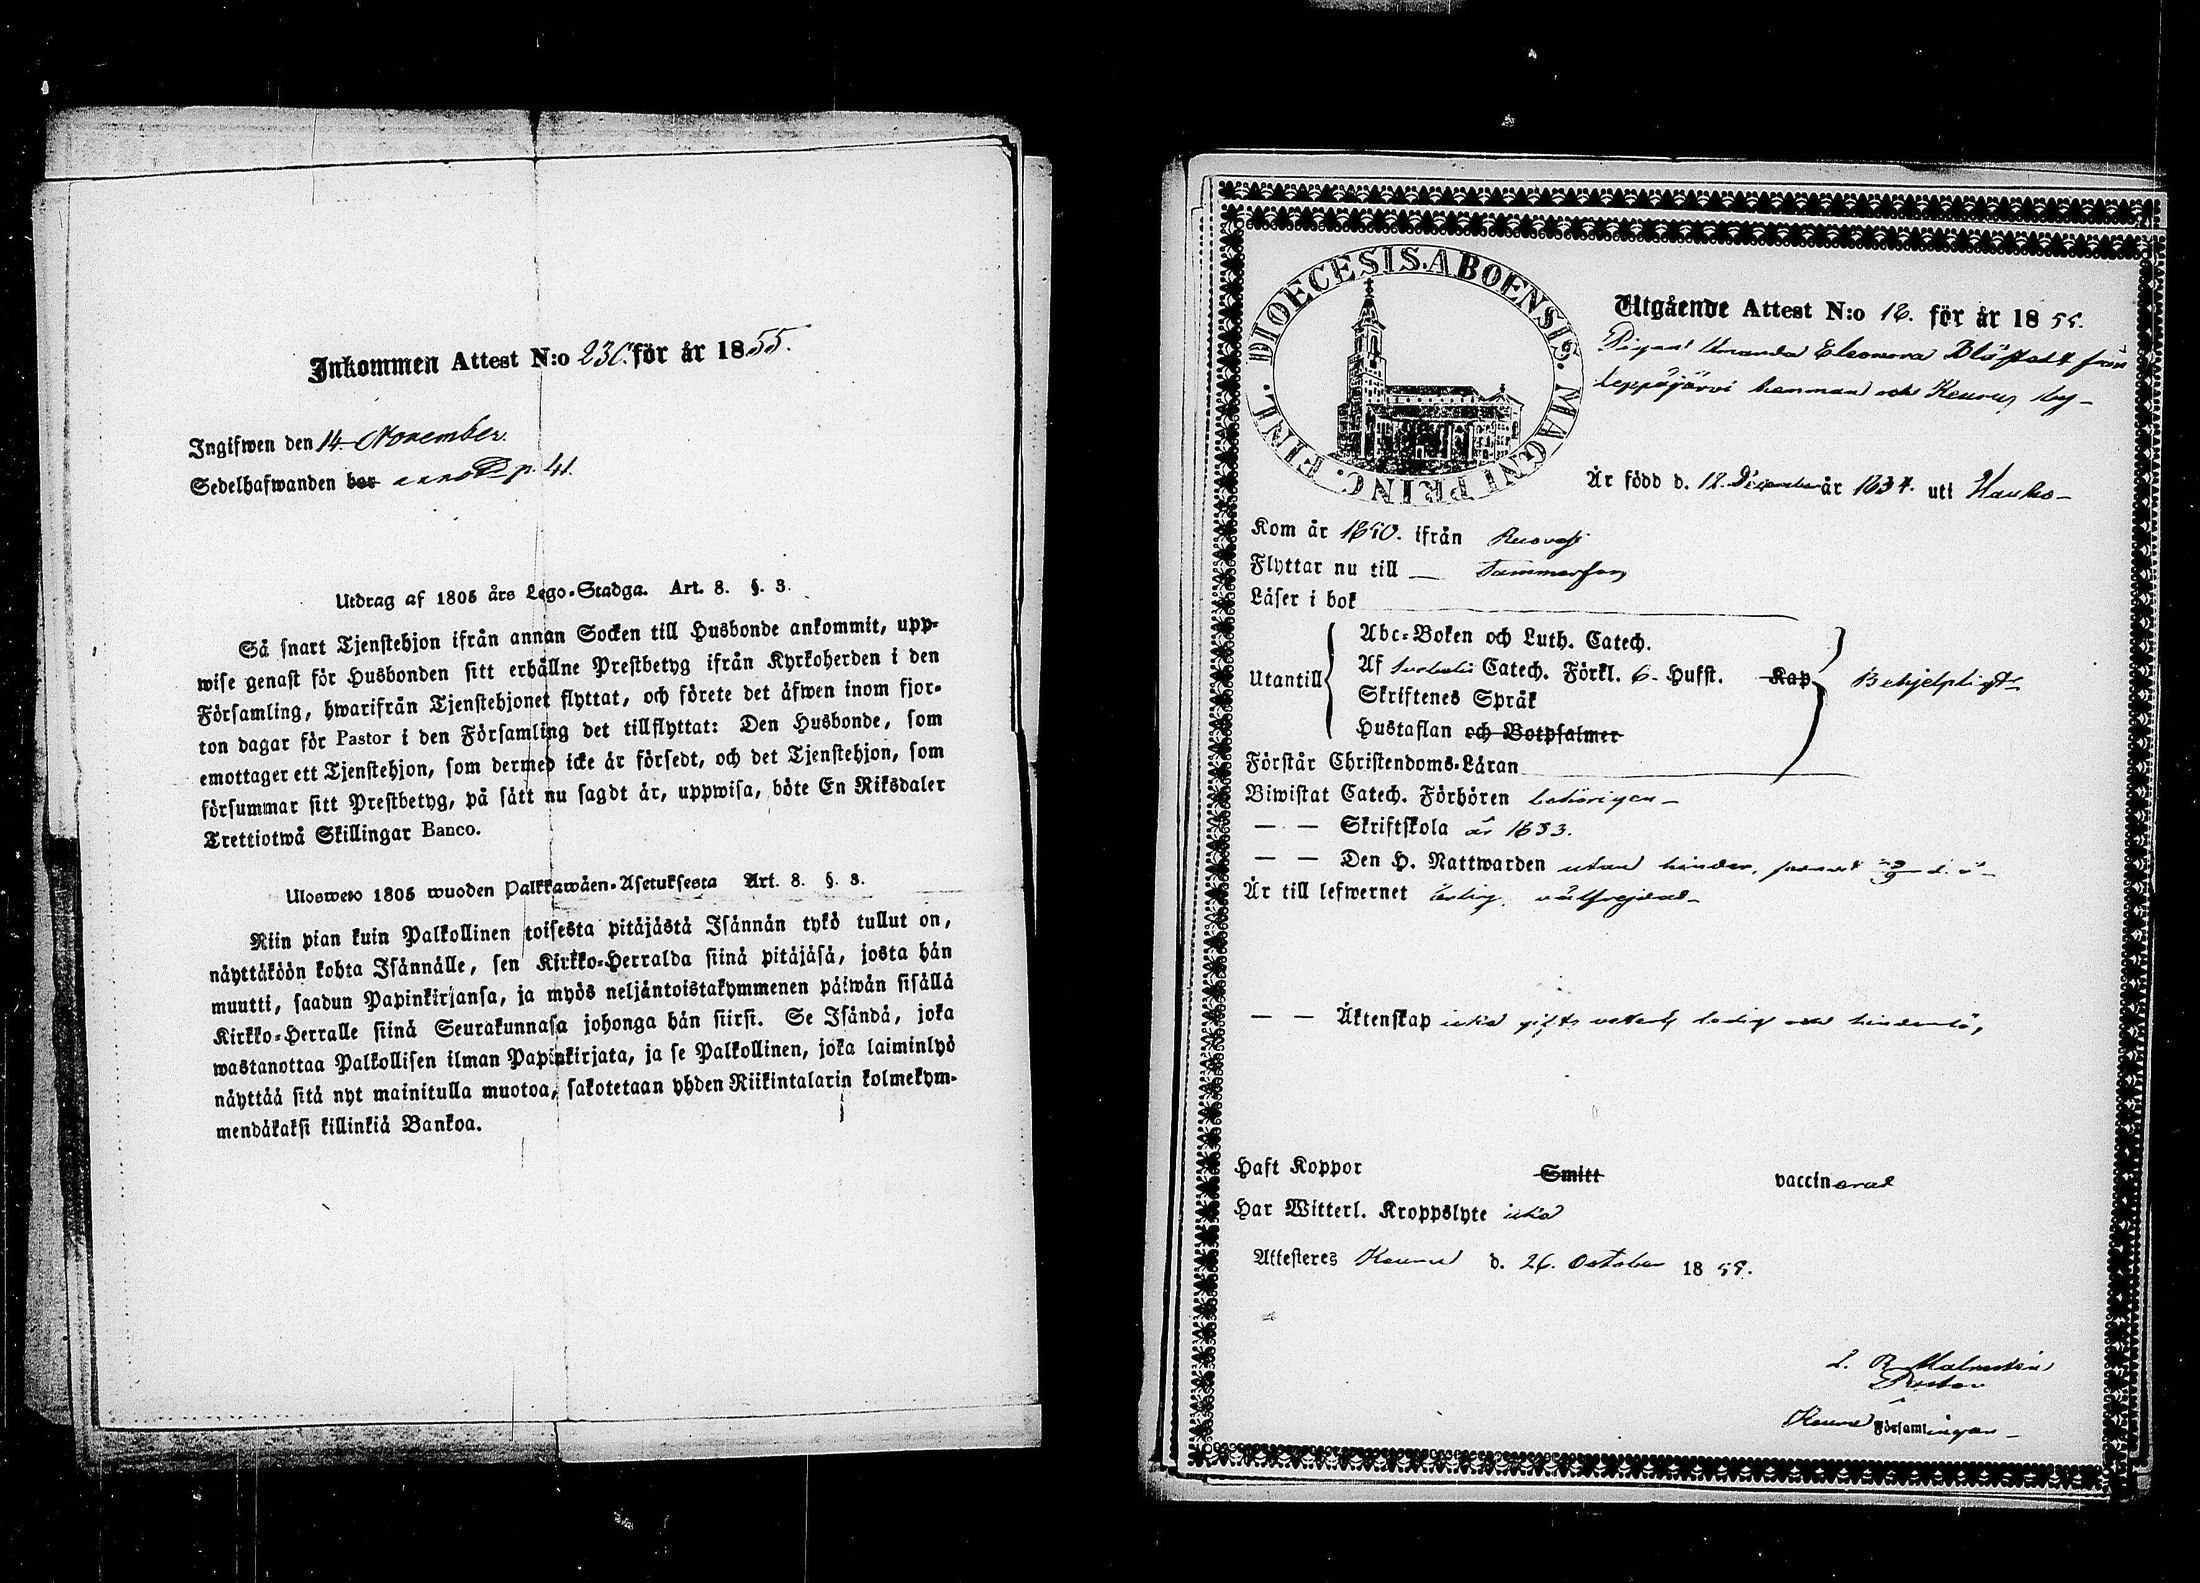 Inkommen Attest N:o 230. för år 1855.
Ingifwen den 14. November.
Sedelhafwanden bor p. 41.
Utdrag af 1805 års Lego-Stadga. Art. 8. §. 3.
Så snart Tjenstehjon ifrån annan Socken till Husbonde ankommit, upp-
wise genast för Husbonden sitt erhållne Prestbetyg ifrån Kyrkoherden i den
Församling, hwarifrån Tjenstehjonet flyttat, och förete det äfwen inom fjor-
ton dagar för Pastor i den Församling det tillflyttat: Den Husbonde, som
emottager ett Tjenstehjon, som dermed icke är försedt, och det Tjenstehjon, som
försummar sitt Prestbetyg, på sätt nu sagdt är, uppwisa, böte En Riksdaler
Trettiotwå Skillingar Banco.
Ulosweto 1805 wuoden Palkkawäen-Asetuksesta Art. 8. §. 3.
Niin pian kuin Palkollinen toisesta pitäjästä Isännän tykö tullut on,
näyttäköön kohta Isännälle, sen Kirkko-Herralda siinä pitäjäsä, josta hän
muutti, saadun Papinkirjansa, ja myös neljäntoistakymmenen päiwän sisällä
Kirkko-Herralle siinä Seurakunnasa johonga hän siirsi. Se Isändä, joka
wastanottaa Palkollisen ilman Papinkirjata, ja se Palkollinen, joka laiminlyö
näyttää sitä nyt mainitulla muotoa, sakotetaan yhden Riikintalarin kolmekym-
mendäkaksi killinkiä Bankoa.
DIOECESIS.ABOENSIS. MAGNI PRINC. FINL.
Utgående Attest N:o 16. för år 1855.
Pigan Amanda Eleonora Blåfjält från
Leppäjärvi hemman och Keuru by
Är född d. 12. December år 1834. uti Hauho
Kom år 1850. ifrån Ruovesi
Flyttar nu till Tammerfors
Läser i bok
Utantill
Abc-Boken och Luth. Catech.
Af Svebelii Catech. Förkl. 6. Hufst. Kap
Skriftenes Språk
Hustaflan och Botpsalmer
Behjelpligt
Förstår Christendoms-Läran
Biwistat Catech. Förhören behörigen
— — Skriftskola år 1853.
— — Den H. Nattwarden utan hinder, senast d. å
Är till lefwernet ärlig, välfrejdad
— — Äktenskap icke gift, veterl. ledig och hinderlös,
Haft Koppor Smitt vaccinerad
Har Witterl. Kroppslyte icke
Attesteres Keuru d. 26. October 1855.
Malmstén
Pastor
Keuru Församlingen